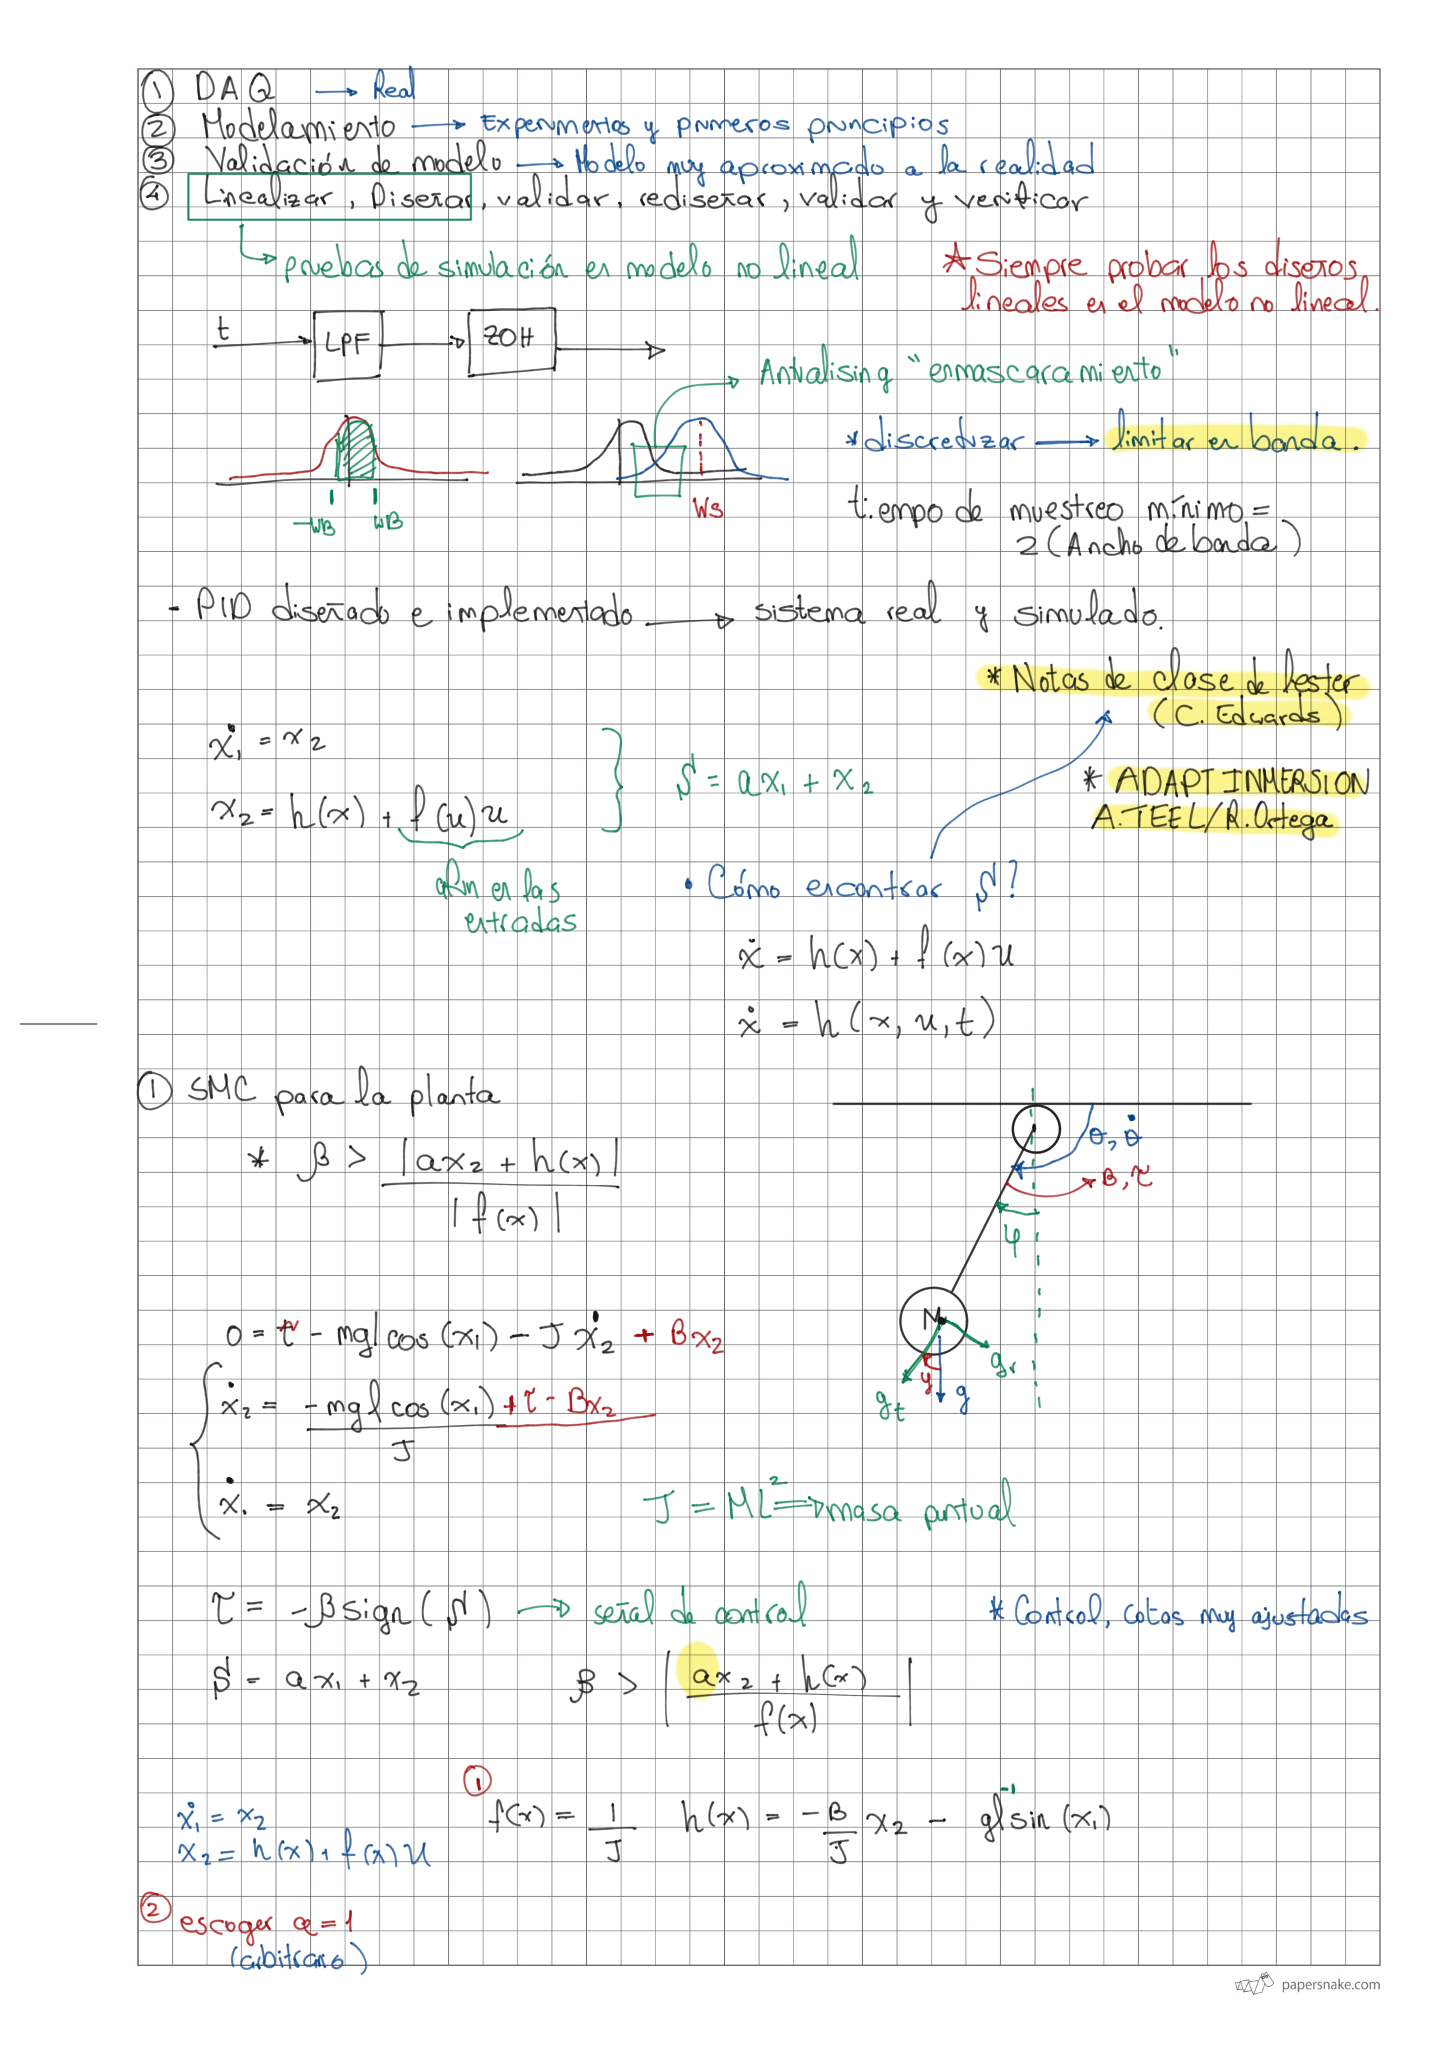 ① DAQ → Real
② Modelamiento → Experimentos y primeros principios
③ Validación de modelo → Modelo muy aproximado a la realidad
④ Linealizar, Diseñar, validar, rediseñar, validar y verificar
→ pruebas de simulación en modelo no lineal
* Siempre probar los diseños
lineales en el modelo no lineal.
t → LPF → ZOH →
Antialising "enmascaramiento"
* discretizar → limitar en banda.
-WB WB
Ws
tiempo de muestreo mínimo =
2 (Ancho de banda)
- PID diseñado e implementado → sistema real y simulado.
* Notas de clase de Lester
(C. Edwards)
ẋ₁ = x₂
x₂ = h(x) + f(u)u
S = ax₁ + x₂
* ADAPT INMERSION
A. TEEL/R. Ortega
afin en las
entradas
• Cómo encontrar S?
ẋ = h(x) + f(x)u
ẋ = h(x, u, t)
① SMC para la planta
* β > |ax₂ + h(x)| / |f(x)|
θ, θ̇
B, τ
φ
M
gr
gt
g
0 = τ - mgl cos(x₁) - J ẋ₂ + Bx₂
ẋ₂ = (-mgl cos(x₁) + τ - Bx₂) / J
ẋ₁ = x₂
J = ML² ⇒ masa puntual
τ = -β sign(S) → señal de control
* Control, cotas muy ajustadas
S = ax₁ + x₂
β > |(ax₂ + h(x)) / f(x)|
①
f(x) = 1/J h(x) = -B/J x₂ - gl⁻¹ sin(x₁)
ẋ₁ = x₂
x₂ = h(x) + f(x)u
② escoger a = 1
(arbitrario)
papersnake.com